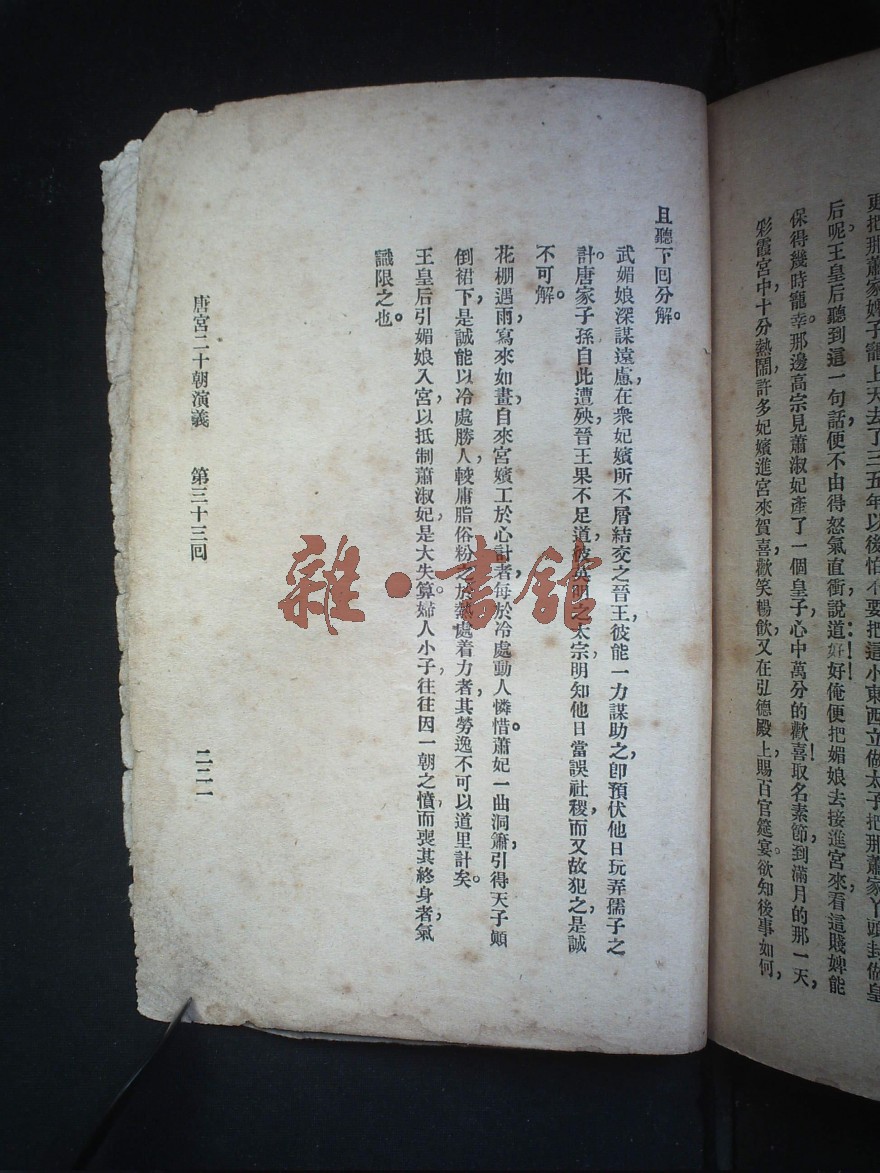 更把那蕭家婢子寵上天去了三五年以後怕不要把這小東西立做太子把那蕭家丫頭封做皇
后呢王皇后聽到這一句話，便不由得怒氣直衝，說道：好！好！俺便把媚娘去接進宮來看這賤婢能
保得幾時寵幸。那邊高宗見蕭淑妃產了一個皇子心中萬分的歡喜！取名素節，到滿月的那一天，
彩霞宮中十分熱鬧，許多妃嬪進宮來賀喜，歡笑暢飲，又在弘德殿上，賜百官筵宴。欲知後事如何，
且聽下回分解。
武媚娘深謀遠慮，在衆妃嬪所不屑結交之晉王，彼能一力謀助之，卽預伏他日玩弄孺子之
計。唐家子孫自此遭殃，晉王果不足道，彼英明之太宗，明知他日當誤社稷，而又故犯之，是誠
不可解。
花棚遇雨，寫來如畫，自來宮嬪工於心計者，每於冷處動人憐惜。蕭妃一曲洞簫，引得天子顚
倒裙下，是誠能以冷處勝人，較庸脂俗粉之於熱處着力者，其勞逸不可以道里計矣。
王皇后引媚娘入宮，以抵制蕭淑妃，是大失算。婦人小子，往往因一朝之憤，而喪其終身者，氣
識限之也。
唐宮二十朝演義 第三十三回 二二一
雜·書館